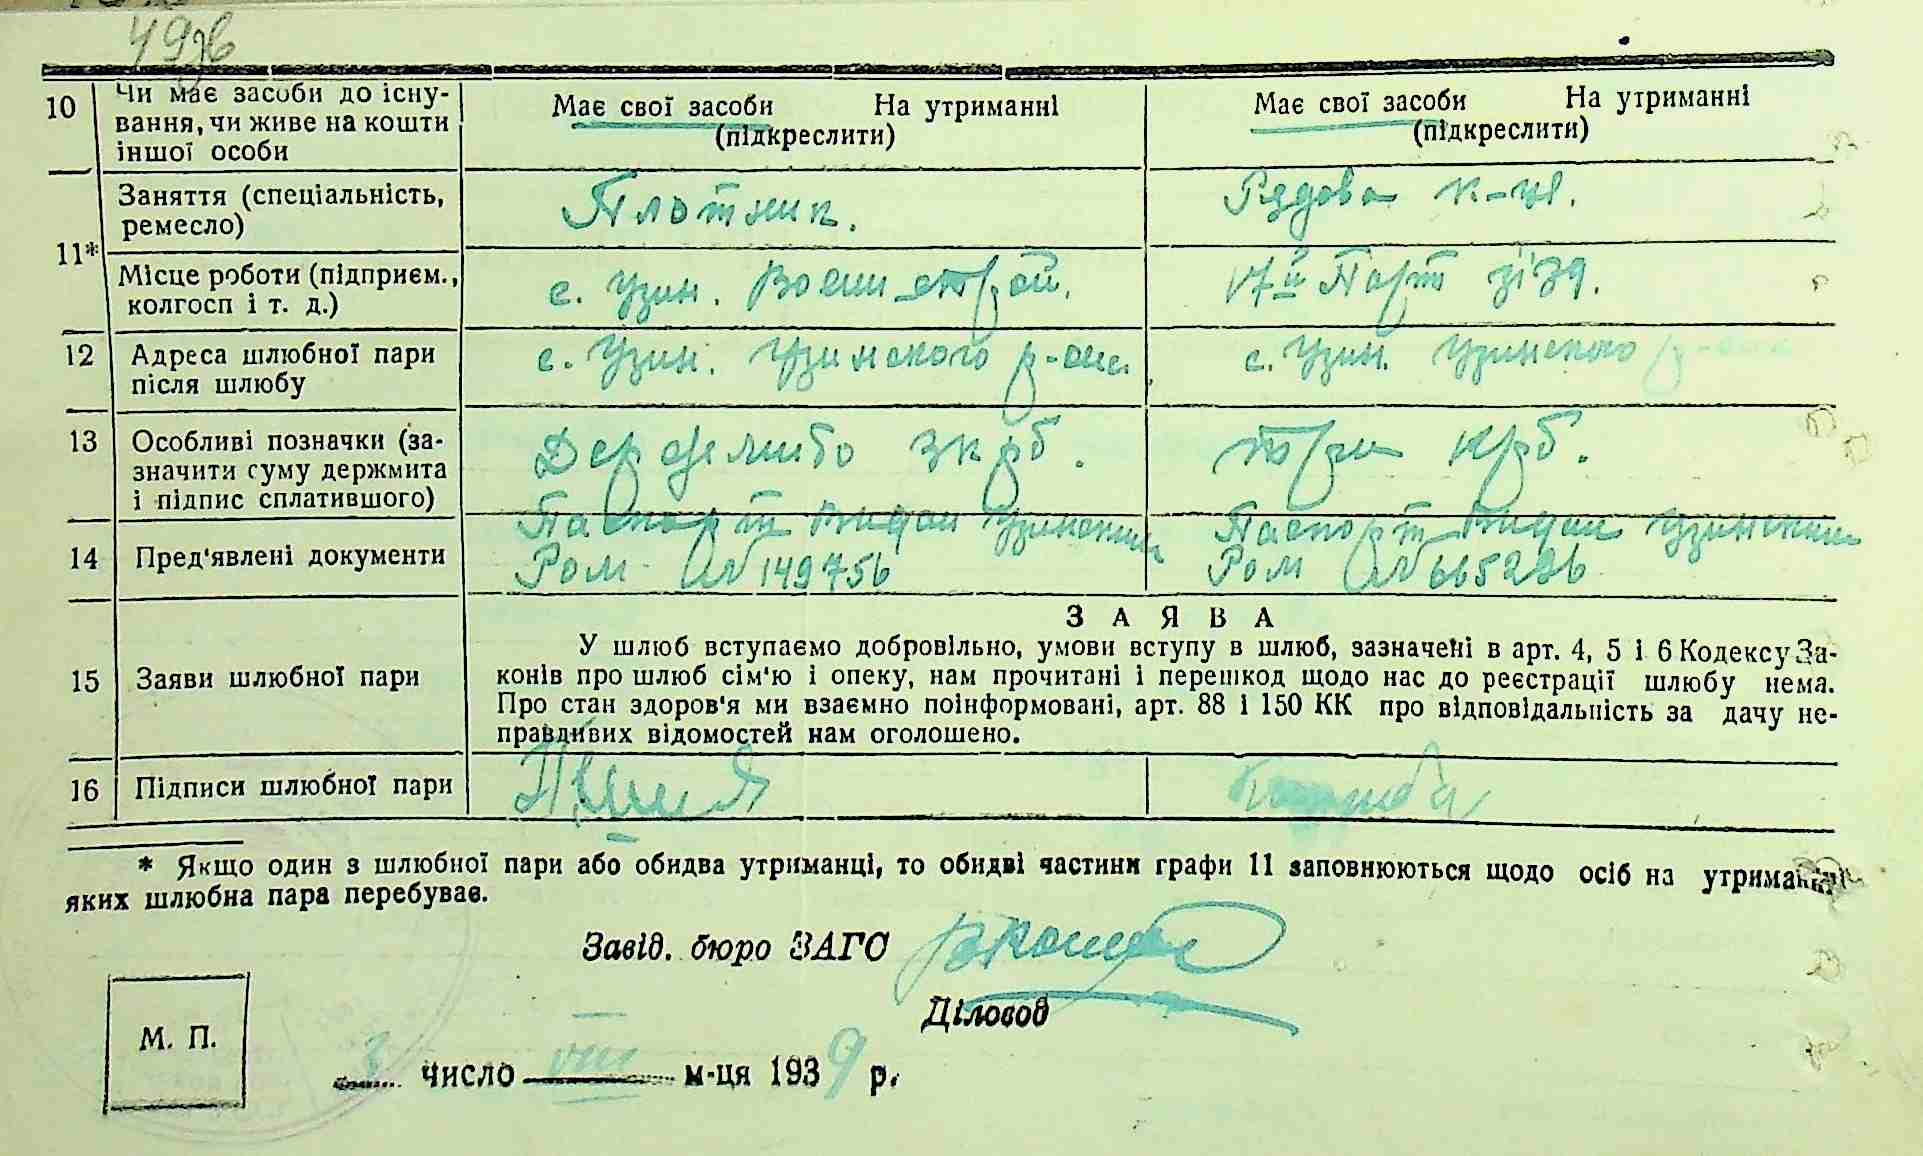 49зв
10 Чи має засоби до існу- Має свої засоби На утриманні Має свої засоби На утриманні
вання, чи живе на кошти (підкреслити) (підкреслити)
іншої особи
11* Заняття (спеціальність, Плотник. Рядова к-ця.
ремесло)
Місце роботи (підприєм., с. Узин. Воєнистрой. 17й Парт зїзд.
колгосп і т. д.)
12 Адреса шлюбної пари с. Узин. Узинского р-она. с. Узин. Узинского р-она
після шлюбу
13 Особливі позначки (за- Держмито 3 крб. три крб.
значити суму держмита
і підпис сплатившого)
Паспорт видан Узинским Паспорт видан Узинским
14 Пред'явлені документи Ром № 149756 Ром №
ЗАЯВА
15 Заяви шлюбної пари У шлюб вступаємо добровільно, умови вступу в шлюб, зазначені в арт. 4, 5 і 6 Кодексу За-
конів про шлюб сім'ю і опеку, нам прочитані і перешкод щодо нас до реєстрації шлюбу нема.
Про стан здоров'я ми взаємно поінформовані, арт. 88 і 150 КК про відповідальність за дачу не-
правдивих відомостей нам оголошено.
16 Підписи шлюбної пари
* Якщо один з шлюбної пари або обидва утриманці, то обидві частини графи 11 заповнюються щодо осіб на утриманні
яких шлюбна пара перебуває.
Завід. бюро ЗАГС
Діловод
М. П.
3 число VIII м-ця 1939 р.